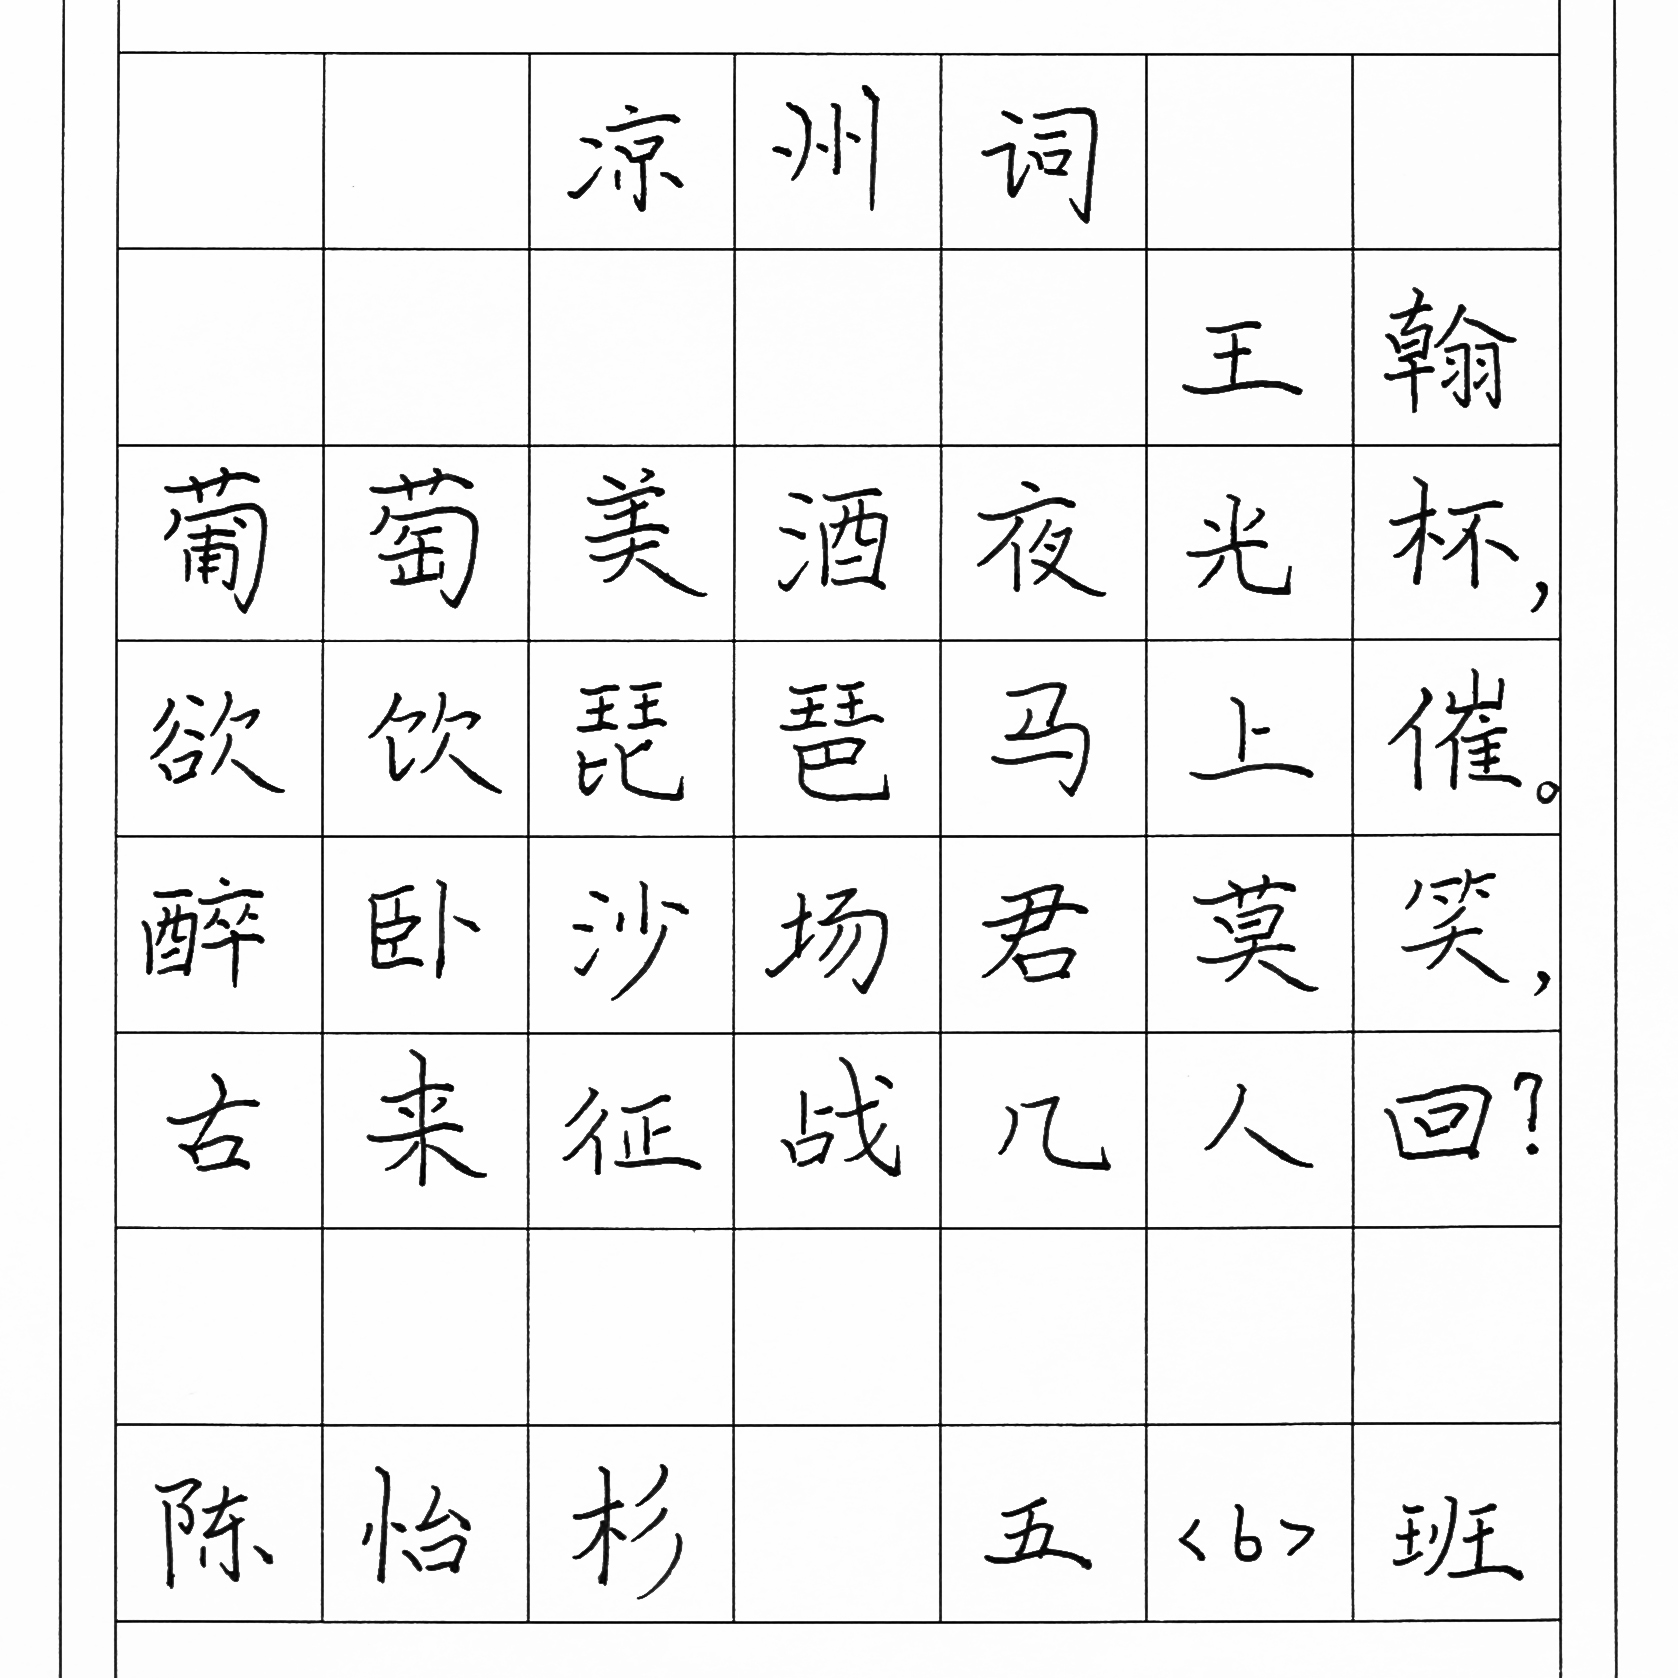 凉州词
王翰
葡萄美酒夜光杯，
欲饮琵琶马上催。
醉卧沙场君莫笑，
古来征战几人回？
陈怡杉 五<6>班